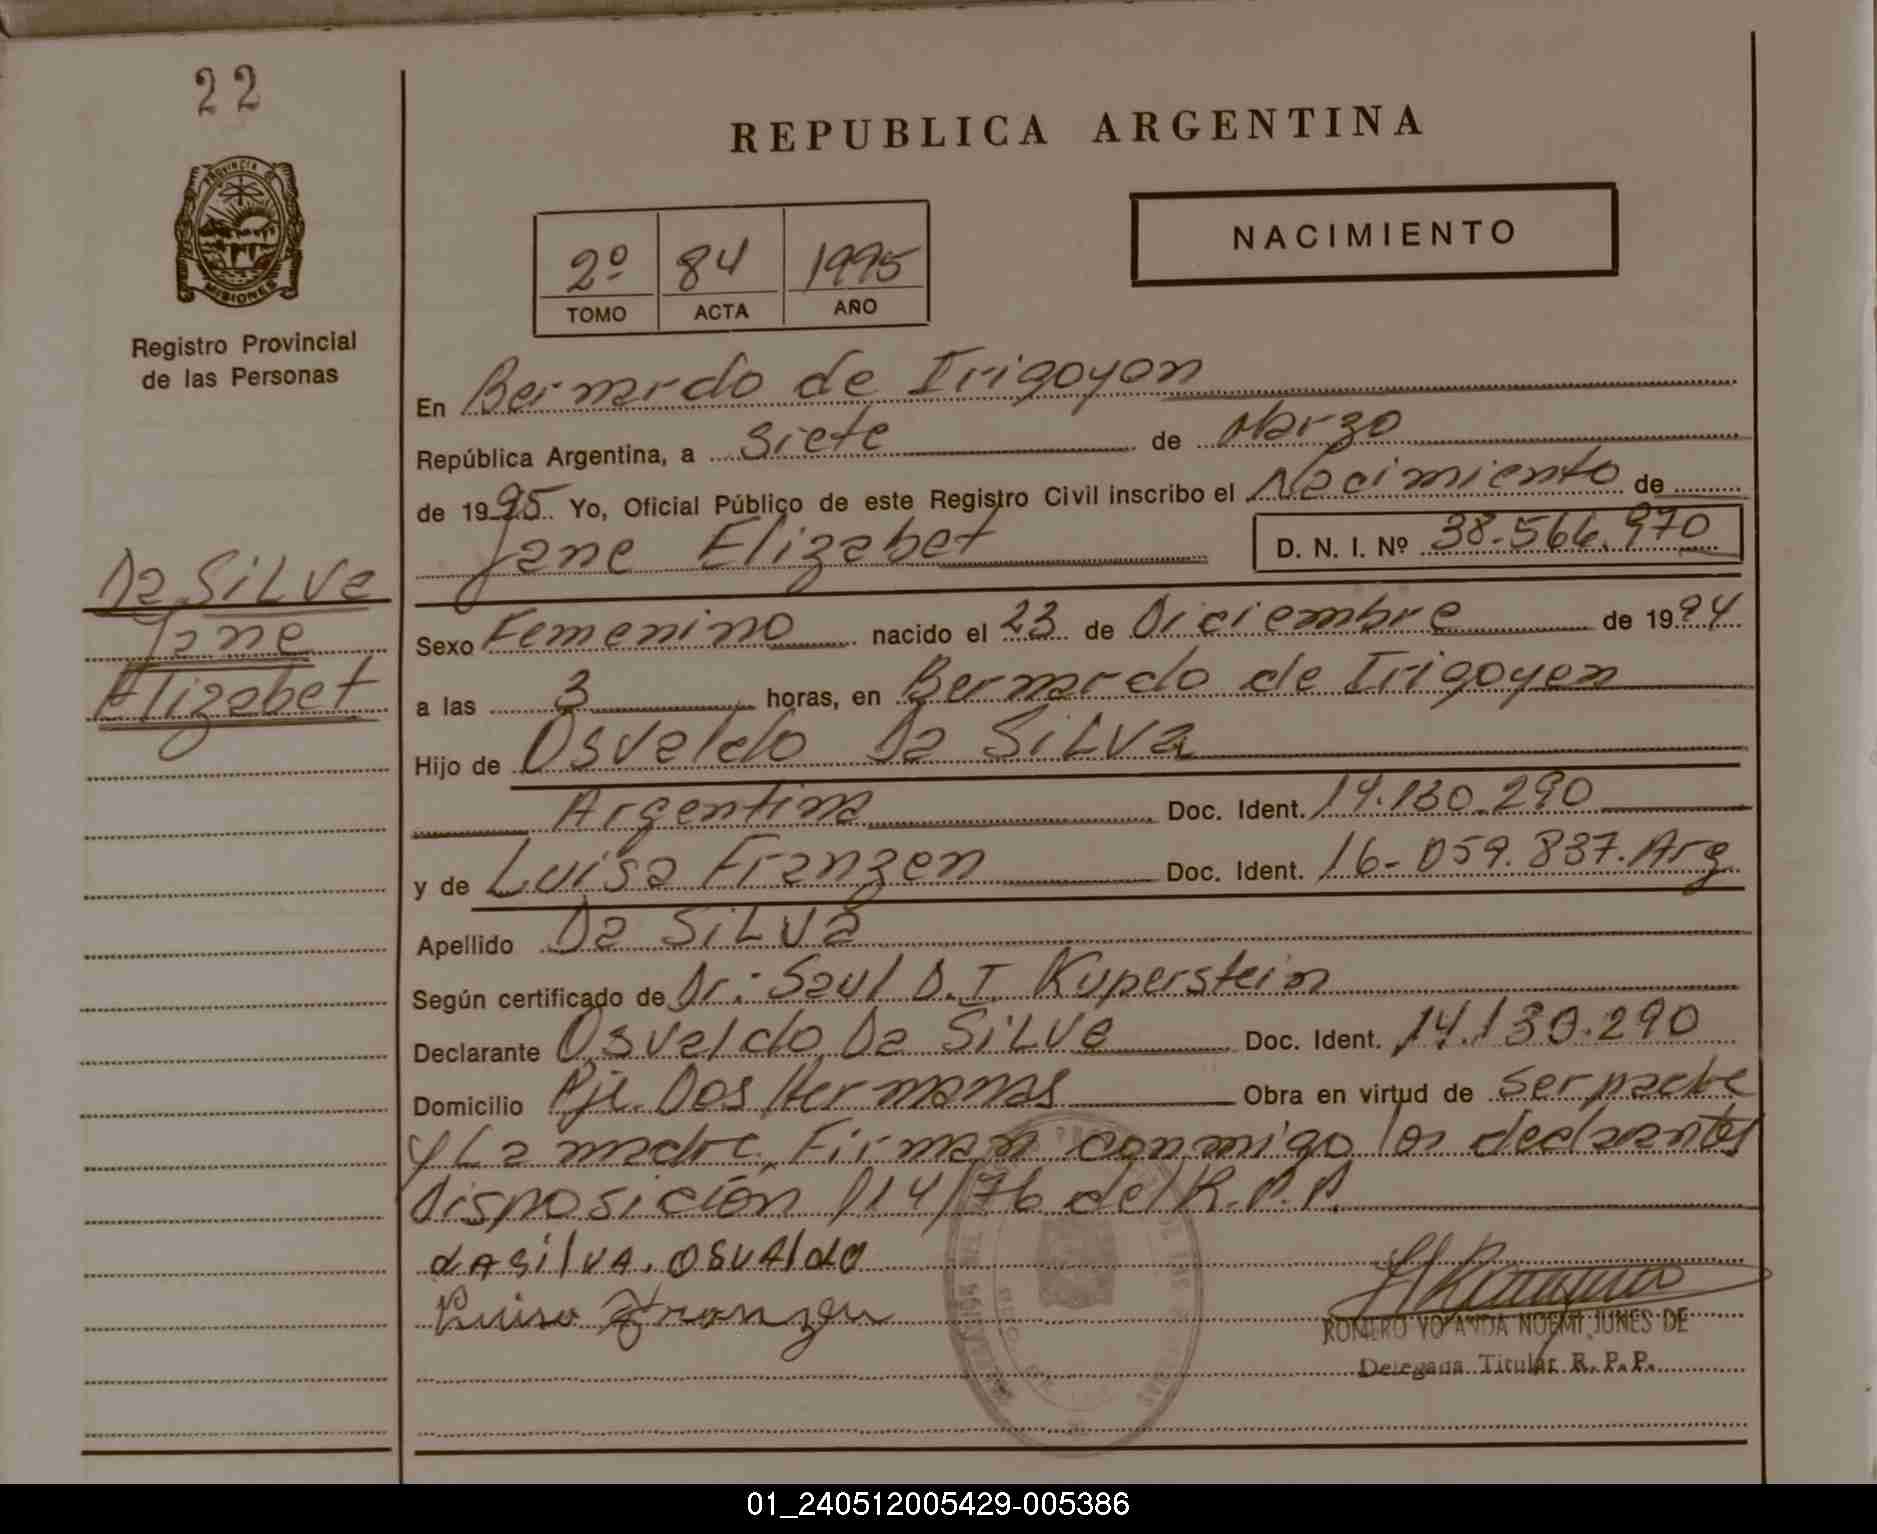 22
PROVINCIA DE
MISIONES
Registro Provincial
de las Personas
Da SiLVa
Jane
Elizabet
REPUBLICA ARGENTINA
2º 84 1995
TOMO ACTA AÑO
NACIMIENTO
En Bernardo de Irigoyen
República Argentina, a Siete de Marzo
de 1995 Yo, Oficial Público de este Registro Civil inscribo el Nacimiento de
Jane Elizabet D. N. I. Nº 38.566.970
Sexo Femenino nacido el 23 de Diciembre de 1994
a las 3 horas, en Bernardo de Irigoyen
Hijo de Osvaldo Da SiLVa
Argentina Doc. Ident. 14.130.290
y de Luisa Franzen Doc. Ident. 16-059.837.Arg
Apellido Da SiLVa
Según certificado de Dr: Saul D. I. Kuperstein
Declarante Osvaldo Da SiLVa Doc. Ident. 14.130.290
Domicilio Pje. Dos Hermanas Obra en virtud de ser padre
y La madre, Firman conmigo los declarantes
Disposición 114/76 del R.P.P.
dASilVA. OSVAldo
Luisa Franzen
ROMERO YOLANDA NOEMI JUNES DE
Delegada Titular R. P. P.
01_240512005429-005386